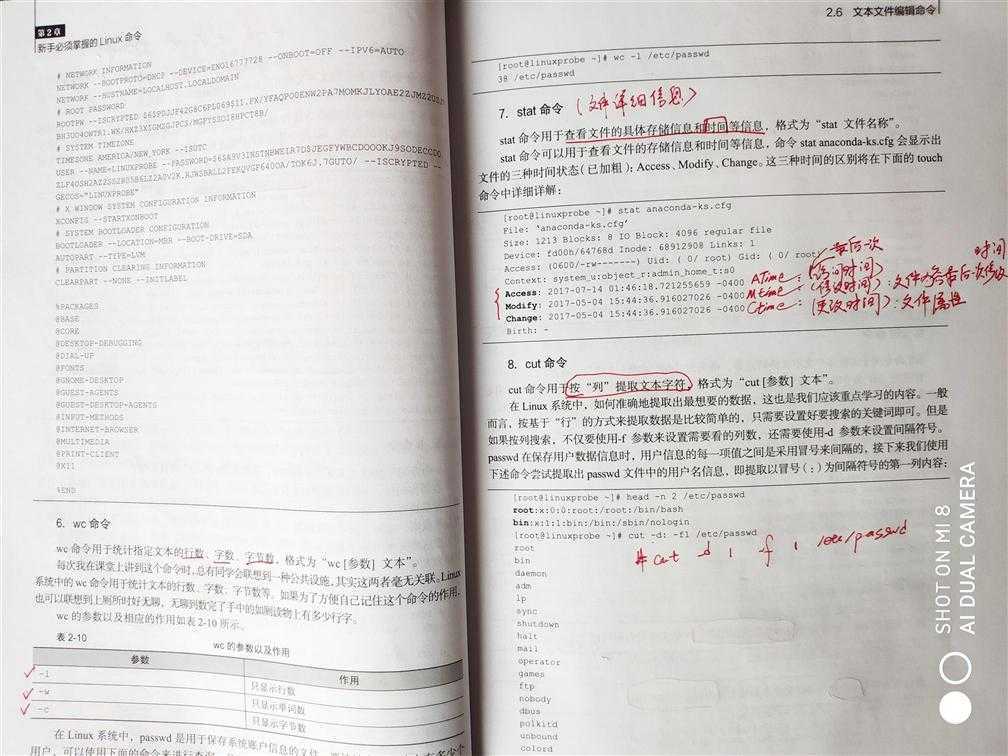 第2章
新手必须掌握的 Linux 命令
# NETWORK INFORMATION
NETWORK --BOOTPROTO=DHCP --DEVICE=ENO16777728 --ONBOOT=OFF --IPV6=AUTO
NETWORK --HOSTNAME=LOCALHOST.LOCALDOMAIN
# ROOT PASSWORD
ROOTPW --ISCRYPTED
# SYSTEM TIMEZONE
TIMEZONE AMERICA/NEW_YORK --ISUTC
USER --NAME=LINUXPROBE --PASSWORD= --ISCRYPTED --
GECOS="LINUXPROBE"
# X WINDOW SYSTEM CONFIGURATION INFORMATION
XCONFIG --STARTXONBOOT
# SYSTEM BOOTLOADER CONFIGURATION
BOOTLOADER --LOCATION=MBR --BOOT-DRIVE=SDA
AUTOPART --TYPE=LVM
# PARTITION CLEARING INFORMATION
CLEARPART --NONE --INITLABEL
%PACKAGES
@BASE
@CORE
@DESKTOP-DEBUGGING
@DIAL-UP
@FONTS
@GNOME-DESKTOP
@GUEST-AGENTS
@GUEST-DESKTOP-AGENTS
@INPUT-METHODS
@INTERNET-BROWSER
@MULTIMEDIA
@PRINT-CLIENT
@X11
%END
6. wc 命令
wc 命令用于统计指定文本的行数、字数、字节数，格式为“wc [参数] 文本”。
每次我在课堂上讲到这个命令时,总有同学会联想到一种公共设施,其实这两者毫无关联。Linux
系统中的 wc 命令用于统计文本的行数、字数、字节数等。如果为了方便自己记住这个命令的作用,
也可以联想到上厕所时好无聊，无聊到数完了手中的如厕读物上有多少行字。
wc 的参数以及相应的作用如表 2-10 所示。
表 2-10 wc 的参数以及作用
参数 作用
-l 只显示行数
-w 只显示单词数
-c 只显示字节数
在 Linux 系统中，passwd 是用于保存系统账户信息的文件，
2.6 文本文件编辑命令
[root@linuxprobe ~]# wc -l /etc/passwd
38 /etc/passwd
7. stat 命令 (文件详细信息)
stat 命令用于查看文件的具体存储信息和时间等信息，格式为“stat 文件名称”。
stat 命令可以用于查看文件的存储信息和时间等信息，命令 stat anaconda-ks.cfg 会显示出
文件的三种时间状态（已加粗）：Access、Modify、Change。这三种时间的区别将在下面的 touch
命令中详细详解：
[root@linuxprobe ~]# stat anaconda-ks.cfg
File: ‘anaconda-ks.cfg’
Size: 1213 Blocks: 8 IO Block: 4096 regular file
Device: fd00h/64768d Inode: 68912908 Links: 1
Access: (0600/-rw-------) Uid: ( 0/ root) Gid: ( 0/ root) 最后一次
Context: system_u:object_r:admin_home_t:s0
Access: 2017-07-14 01:46:18.721255659 -0400 ATime：(访问时间)
Modify: 2017-05-04 15:44:36.916027026 -0400 Mtime：(修改时间)：文件内容最后一次修改时间
Change: 2017-05-04 15:44:36.916027026 -0400 Ctime：(更改时间)：文件属性
Birth: -
8. cut 命令
cut 命令用于按“列”提取文本字符，格式为“cut [参数] 文本”。
在 Linux 系统中，如何准确地提取出最想要的数据，这也是我们应该重点学习的内容。一般
而言，按基于“行”的方式来提取数据是比较简单的，只需要设置好要搜索的关键词即可。但是
如果按列搜索，不仅要使用-f 参数来设置需要看的列数，还需要使用-d 参数来设置间隔符号。
passwd 在保存用户数据信息时，用户信息的每一项值之间是采用冒号来间隔的，接下来我们使用
下述命令尝试提取出 passwd 文件中的用户名信息，即提取以冒号（:）为间隔符号的第一列内容：
[root@linuxprobe ~]# head -n 2 /etc/passwd
root:x:0:0:root:/root:/bin/bash
bin:x:1:1:bin:/bin:/sbin/nologin
[root@linuxprobe ~]# cut -d: -f1 /etc/passwd
# cut -d : -f 1 /etc/passwd
root
bin
daemon
adm
lp
sync
shutdown
halt
mail
operator
games
ftp
nobody
dbus
polkitd
unbound
colord
SHOT ON MI 8
AI DUAL CAMERA